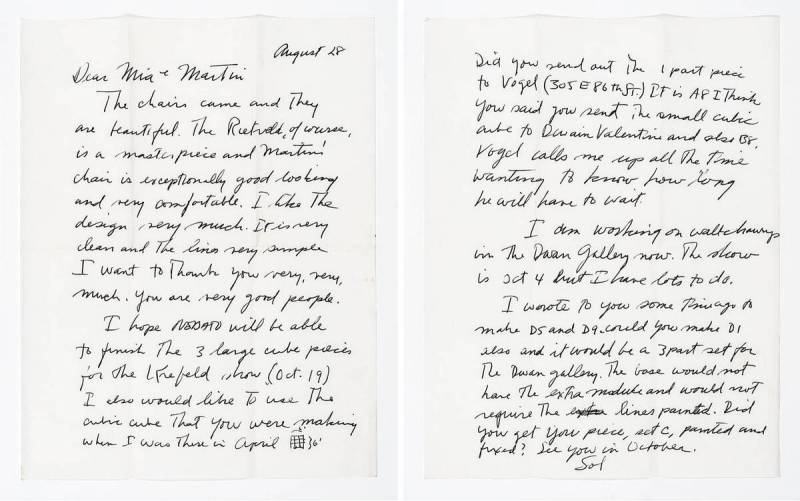 August 28
Dear Mia & Martin
The chairs came and They
are beautiful. The Rietveld, of course,
is a masterpiece and Martins'
chair is exceptionally good looking
and very comfortable. I like the
design very much. It is very
clean and the lines very simple
I want to Thank you very, very,
much. you are very good people.
I hope will be able
to finish The 3 large cube pieces
for the Krefeld show (Oct. 19)
I also would like to use The
cubic cube That you were making
when I was There in April 36"
Did you send out The 1 part piece
to Vogel (305 E 86th St.) It is A8 I Think
you said you sent The small cubic
cube to Dwain Valentine and also B8.
Vogel calls me up all the Time
wanting To know how long
he will have to wait.
I am working on wall drawings
in The Dwan Gallery now. The show
is Oct 4 but I have lots to do.
I wrote To you some Time ago to
make D5 and D9. could you make D1
also and it would be a 3 part set for
The Dwan gallery. The base would not
have The extra module and would not
require The extra lines painted. Did
you get your piece, set C, painted and
fixed? See you in October.
Sol